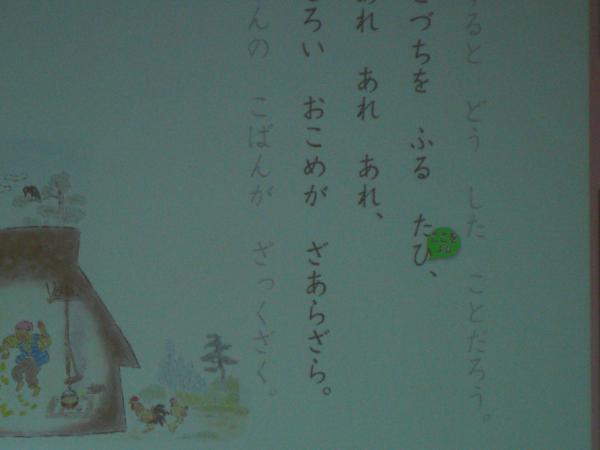 すると どう した ことだろう。
づちを ふる たび、
あれ あれ あれ、
ろい おこめが ざあらざら。
んの こばんが ざっくざく。